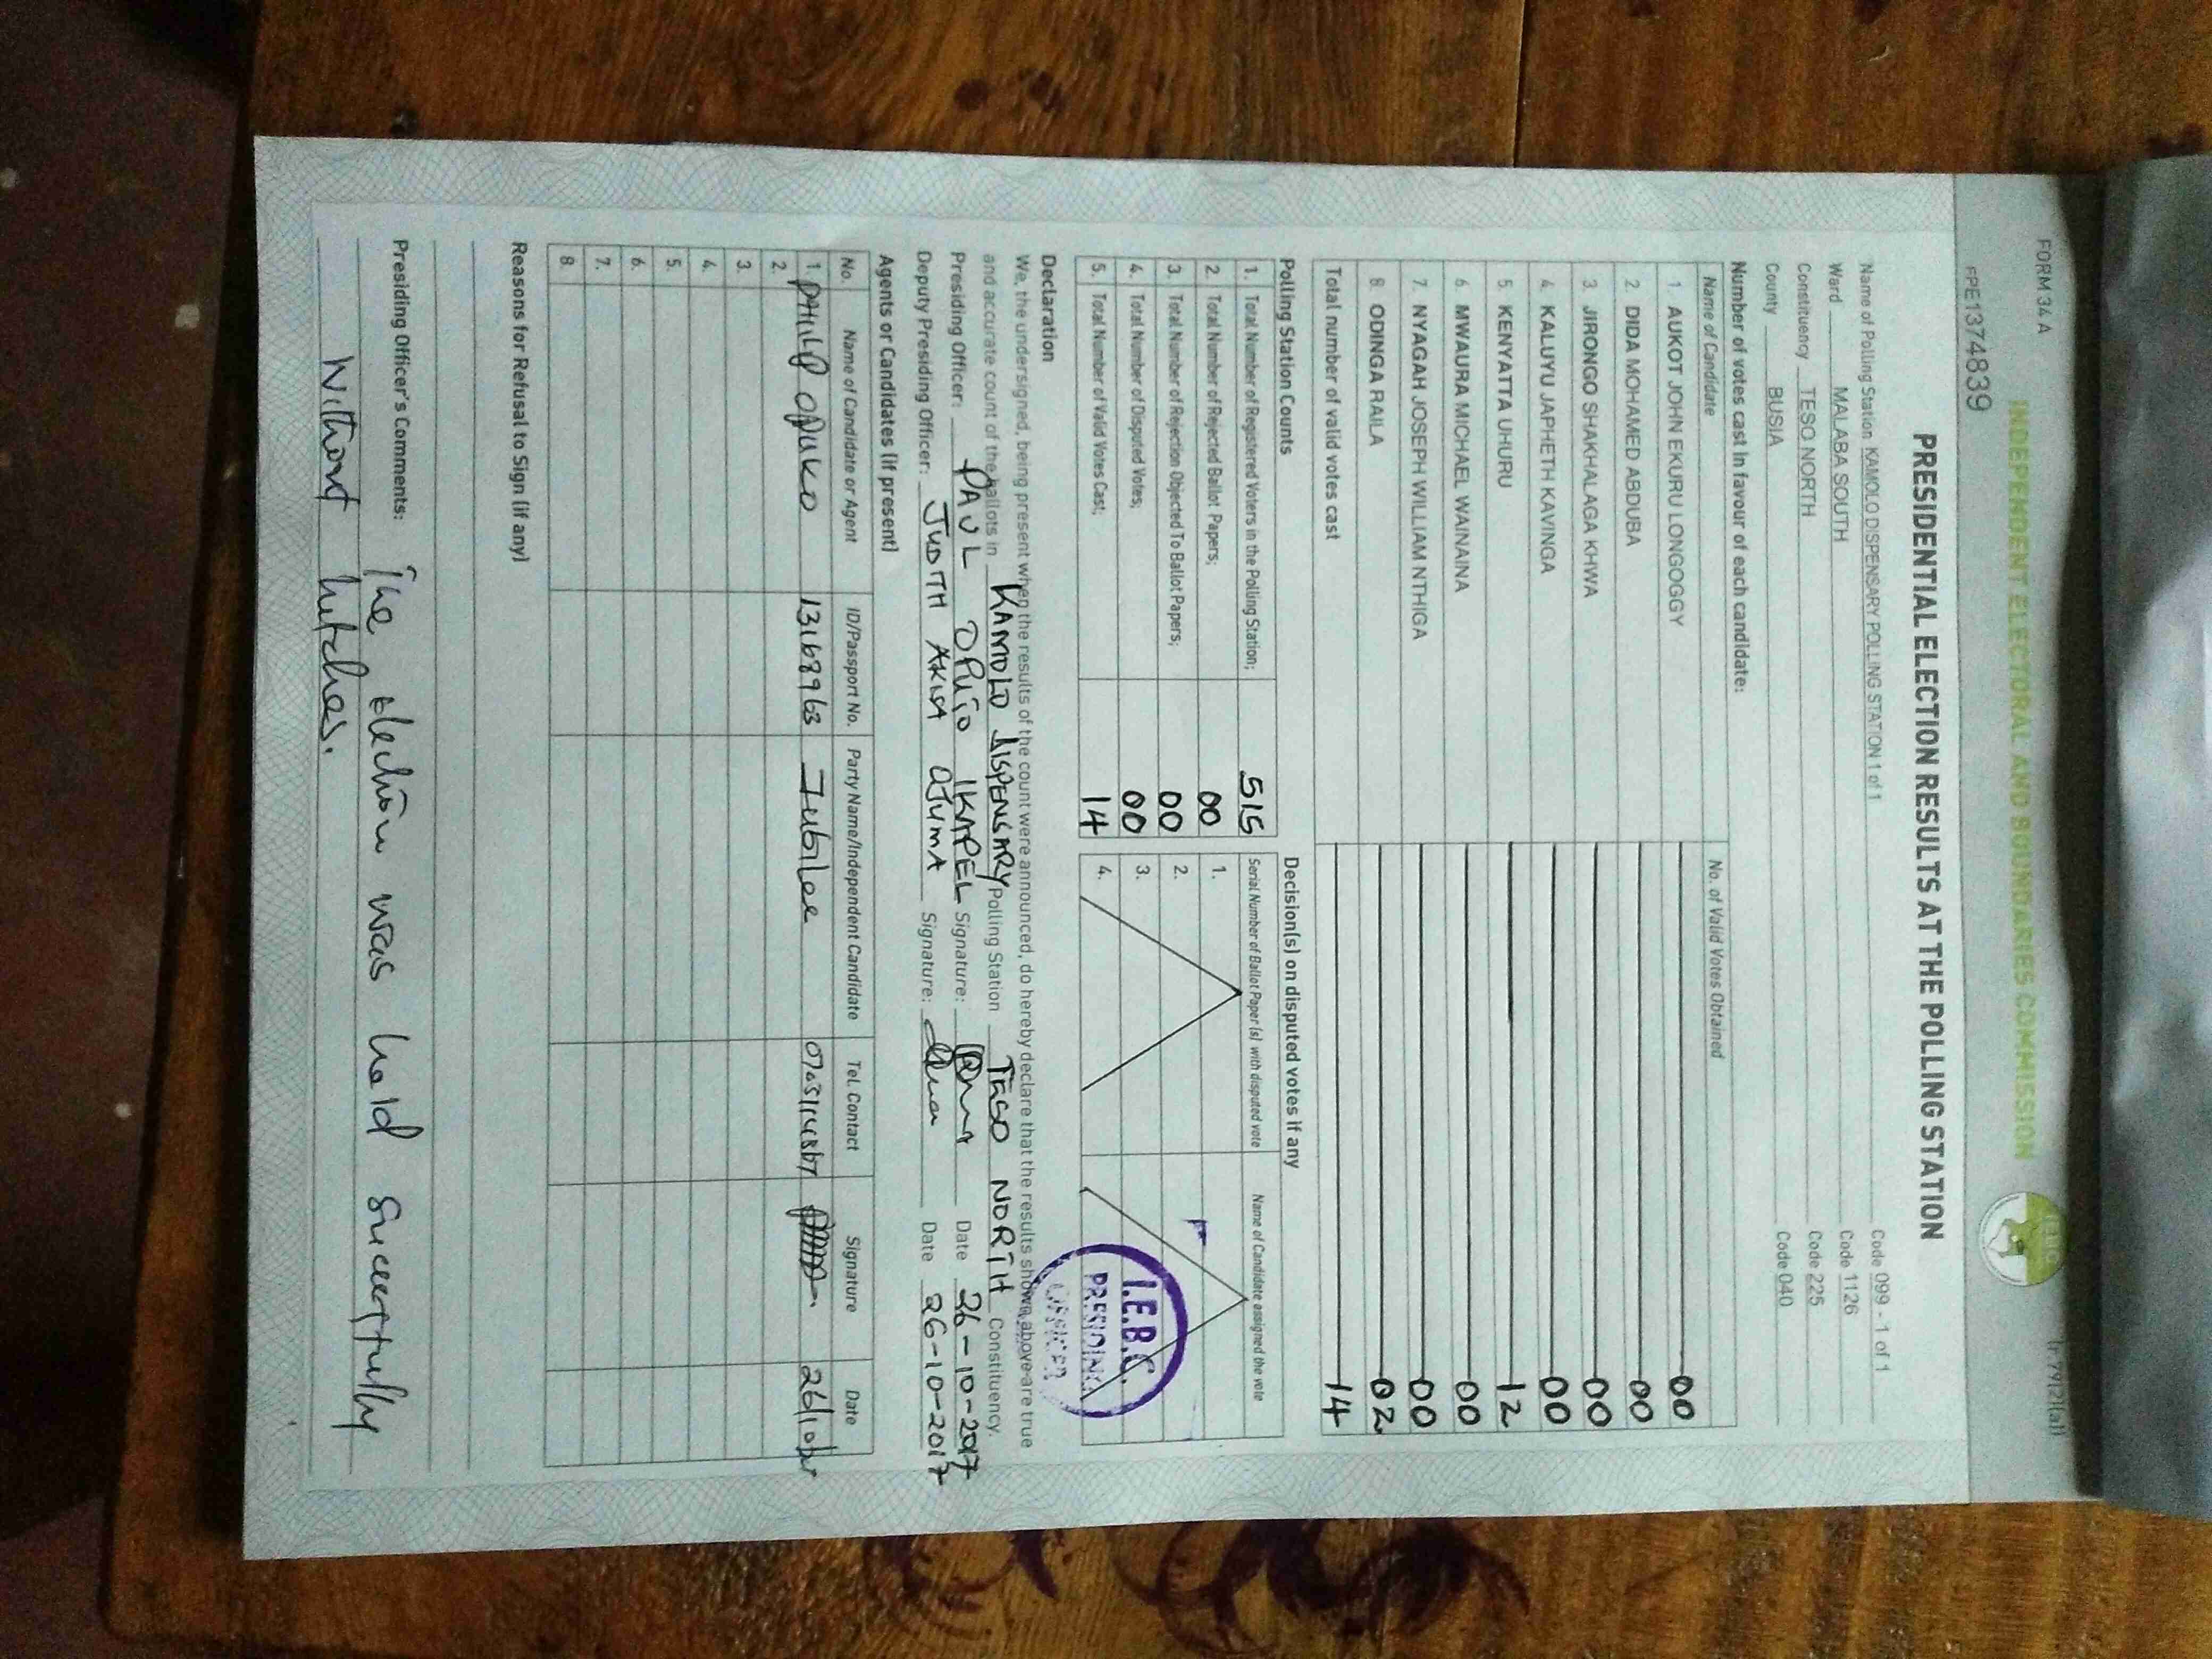 FORM 34 A
(r.79(2)(a))
INDEPENDENT ELECTORAL AND BOUNDARIES COMMISSION
PRESIDENTIAL ELECTION RESULTS AT THE POLLING STATION
Name of Polling Station KAMOLO DISPENSARY POLLING STATION 1 of 1 Code 099 - 1 of 1
Ward MALABA SOUTH Code 1126
Constituency TESO NORTH Code 225
County BUSIA Code 040
Number of votes cast in favour of each candidate:
Name of Candidate No. of Valid Votes Obtained
1 AUKOT JOHN EKURU LONGOGGY 00
2 DIDA MOHAMED ABDUBA 00
3 JIRONGO SHAKHALAGA KHWA 00
4 KALUYU JAPHETH KAVINGA 00
5 KENYATTA UHURU 12
6 MWAURA MICHAEL WAINAINA 00
7 NYAGAH JOSEPH WILLIAM NTHIGA 00
8 ODINGA RAILA 02
Total number of valid votes cast 14
Polling Station Counts
1. Total Number of Registered Voters in the Polling Station; 515
2. Total Number of Rejected Ballot Papers; 00
3. Total Number of Rejection Objected To Ballot Papers; 00
4. Total Number of Disputed Votes; 00
5. Total Number of Valid Votes Cast; 14
Decision(s) on disputed votes if any
Serial Number of Ballot Paper (s) with disputed vote Name of Candidate assigned the vote
1.
2.
3.
4.
I.E.B.C.
PRESIDING
OFFICER
Declaration
We, the undersigned, being present when the results of the count were announced, do hereby declare that the results shown above are true
and accurate count of the ballots in KAMOLO DISPENSARY Polling Station TESO NORTH Constituency.
Presiding Officer: PAUL OPIIO IKAPEL Signature: Date 26-10-2017
Deputy Presiding Officer: JUDITH AKISA AJUMA Signature: Date 26-10-2017
Agents or Candidates (if present)
No. Name of Candidate or Agent ID/Passport No. Party Name/Independent Candidate Tel. Contact Signature Date
1. PHILIP OPUKO 13168963 Jubilee
2.
3.
4.
5.
6.
7.
8.
Reasons for Refusal to Sign (if any)
Presiding Officer's Comments: The election was held successfully
without hitches.